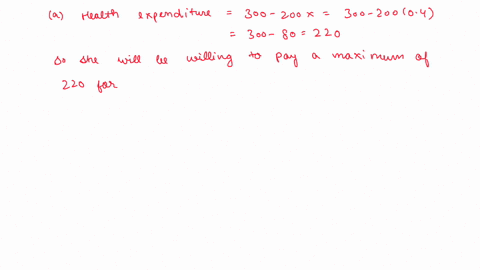 (a) Health expenditure = 300-200x = 300-200(0.4)
= 300-80 = 220
So she will be willing to pay a maximum of
220 for